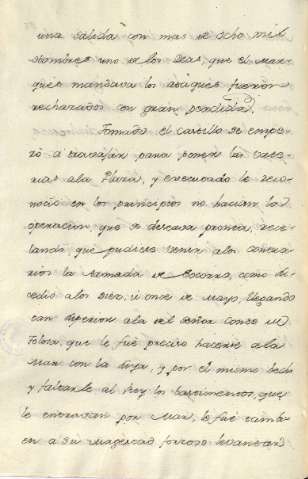 una salida con mas de ocho mil
hombres uno de los dias, que el Mar-
ques mandava los ataques fueron
rechazados con gran perdida.
Tomado el castillo se empe-
zó a travajar para poner las vate-
rias a la Plaza, y executado se reco-
noció en los principios no hacian la
operacion que se deseava pronta, rece-
lando que pudiese venir a los contra-
rios la armada de socorro, como su-
cedio a los diez, ú once de Mayo, llegando
con superior a la del señor Conde de
Tolosa, que le fue preciso hacerse a la
Mar con la suya, y por el mismo hecho
y faltarle al Rey los bastimentos, que
le entravan por Mar, le fue tambi-
en a su Magestad forzoso levantar